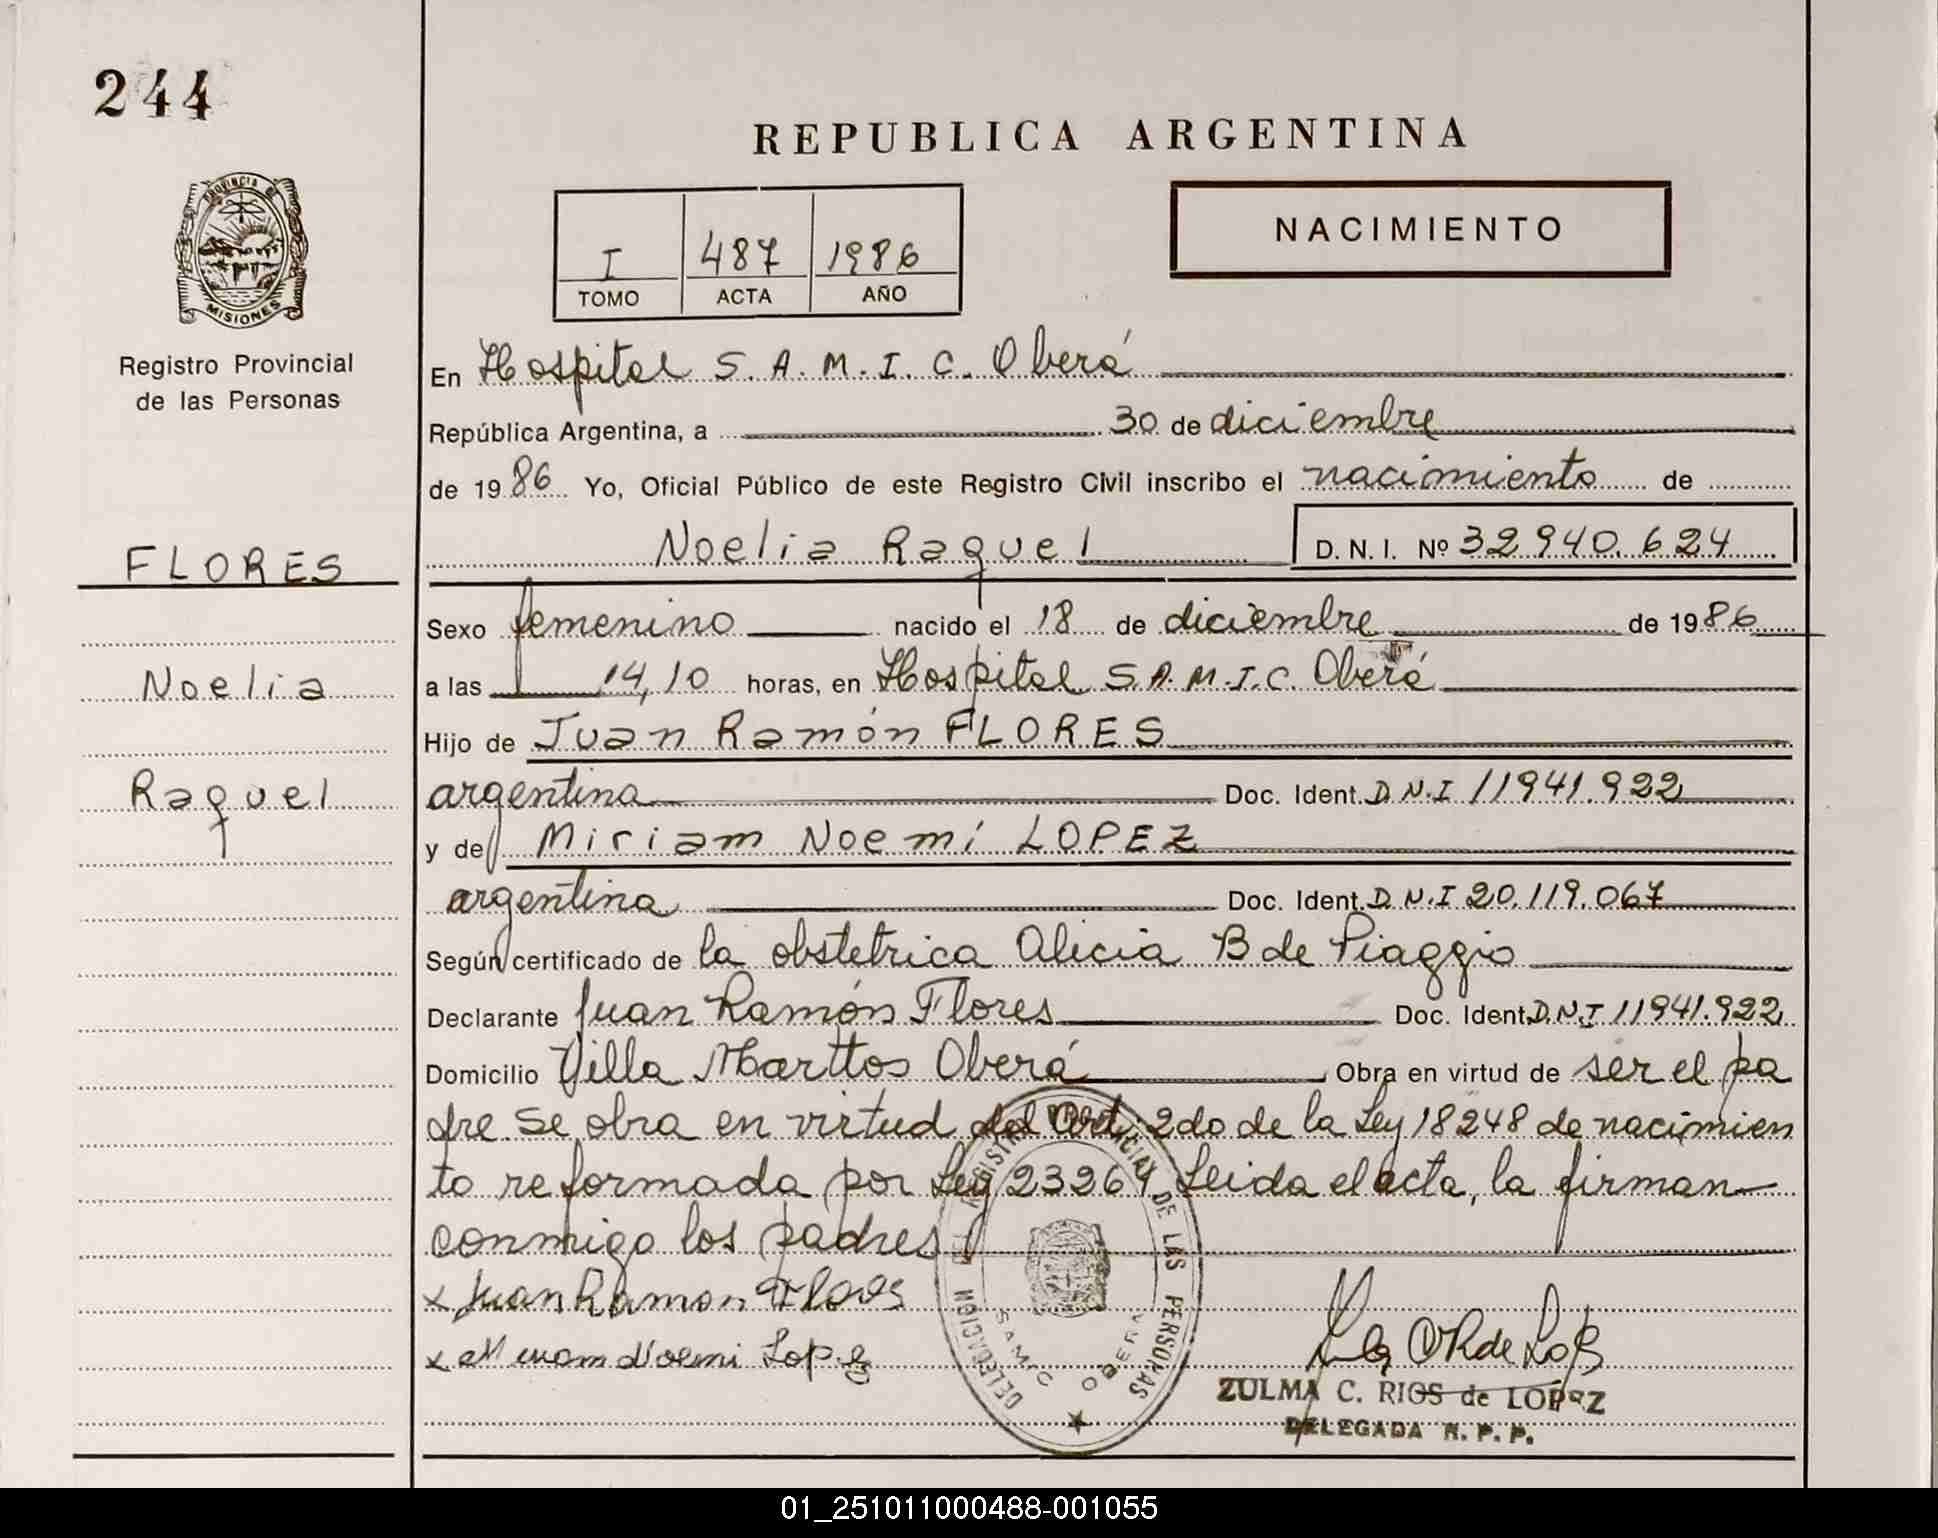 244
REPUBLICA ARGENTINA
PROVINCIA DE
MISIONES
Registro Provincial
de las Personas
I 487 1986
TOMO ACTA AÑO
NACIMIENTO
En Hospital S.A.M.I.C. Oberá
República Argentina, a 30 de diciembre
de 1986 Yo, Oficial Público de este Registro Civil inscribo el nacimiento de
Noelia Raquel D.N.I. Nº 32.940.624
FLORES
Noelia
Raquel
Sexo femenino nacido el 18 de diciembre de 1986
a las 14,10 horas, en Hospital S.A.M.I.C. Oberá
Hijo de Juan Ramón FLORES
argentina Doc. Ident. D.N.I 11941.922
y de Miriam Noemí LOPEZ
argentina Doc. Ident. D.N.I 20.119.067
Según certificado de la obstetrica Alicia B de Piaggio
Declarante Juan Ramón Flores Doc. Ident. D.N.I 11941.922
Domicilio Villa Marttos Oberá Obra en virtud de ser el pa
dre. Se obra en virtud del Art. 2do de la Ley 18248 de nacimien
to reformada por Ley 23264 Leida el acta, la firman
conmigo los padres
x Juan Ramon Flores
x Miriam Noemi Lopez
DELEGACION DEL REGISTRO PROVINCIAL DE LAS PERSONAS
SAMIC OBERA
ZULMA C. RIOS de LOPEZ
DELEGADA R.P.P.
01_251011000488-001055